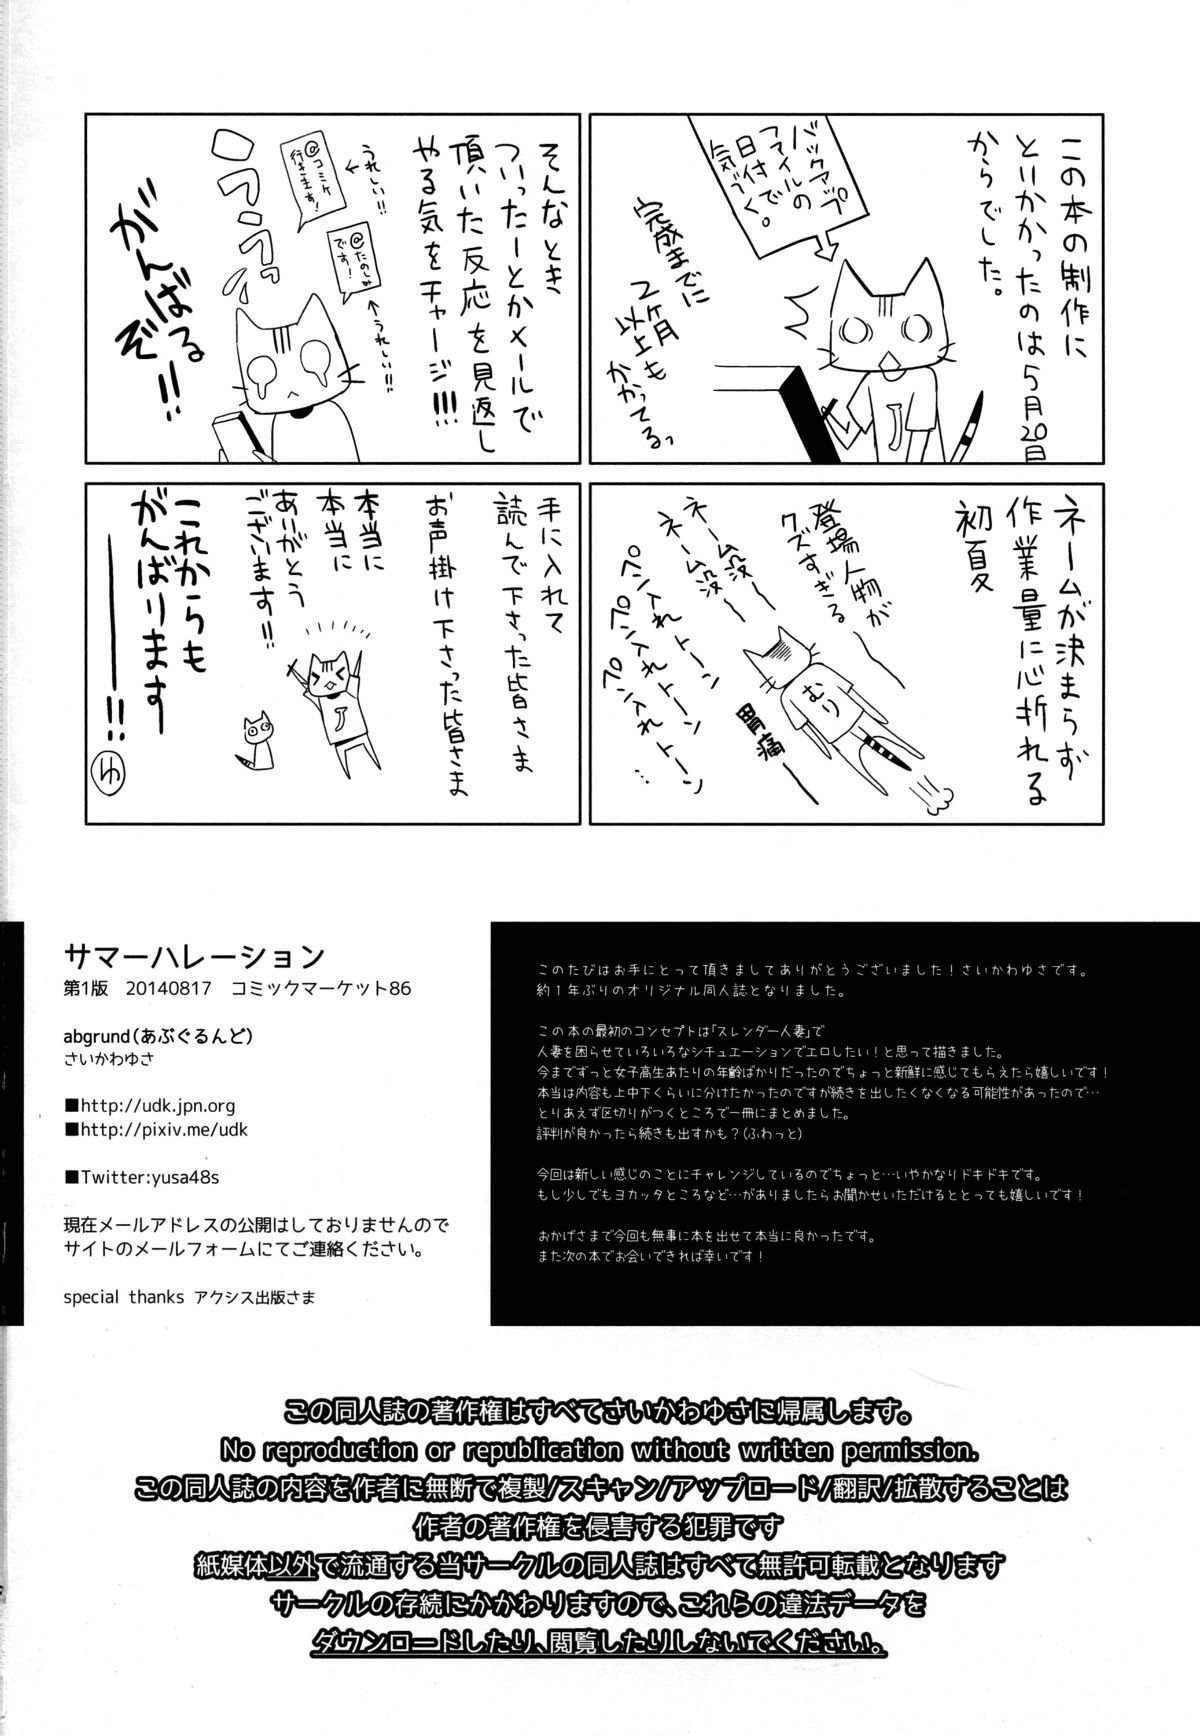 この本の制作に
とりかかったのは5月20日
からでした。
バックアップ
ファイルの
日付で
気づく。
完成までに
2ヶ月
以上も
かかってるっ
そんなとき
ついったーとかメールで
頂いた反応を見返し
やる気をチャージ!!!
うれしい!!
@コミケ
行きます!
@たのしみ
です!
うれしい!!
うおおおっ
がんばる
ぞ!!
ネームが決まらず
作業量に心折れる
初夏
登場人物が
クズすぎる
ネーム没ー
ネーム没ー
ペン入れトーン
ペン入れトーン
ペン入れトーン
むり
胃痛ー
手に入れて
読んで下さった皆さま
お声掛け下さった皆さま
本当に
本当に
ありがとう
ございます!!
これからも
がんばります
――!!
ゆ
サマーハレーション
第1版　20140817　コミックマーケット86
abgrund(あぶぐるんど)
さいかわゆさ
■http://udk.jpn.org
■http://pixiv.me/udk
■Twitter:yusa48s
現在メールアドレスの公開はしておりませんので
サイトのメールフォームにてご連絡ください。
special thanks アクシス出版さま
このたびはお手にとって頂きましてありがとうございました!さいかわゆさです。
約1年ぶりのオリジナル同人誌となりました。
この本の最初のコンセプトは「スレンダー人妻」で
人妻を困らせていろいろなシチュエーションでエロしたい!と思って描きました。
今までずっと女子高生あたりの年齢ばかりだったのでちょっと新鮮に感じてもらえたら嬉しいです!
本当は内容も上中下くらいに分けたかったのですが続きを出したくなくなる可能性があったので…
とりあえず区切りがつくところで一冊にまとめました。
評判が良かったら続きも出すかも?(ふわっと)
今回は新しい感じのことにチャレンジしているのでちょっと…いやかなりドキドキです。
もし少しでもヨカッタところなど…がありましたらお聞かせいただけるととっても嬉しいです!
おかげさまで今回も無事に本を出せて本当に良かったです。
また次の本でお会いできれば幸いです!
この同人誌の著作権はすべてさいかわゆさに帰属します。
No reproduction or republication without written permission.
この同人誌の内容を作者に無断で複製/スキャン/アップロード/翻訳/拡散することは
作者の著作権を侵害する犯罪です
紙媒体以外で流通する当サークルの同人誌はすべて無許可転載となります
サークルの存続にかかわりますので、これらの違法データを
ダウンロードしたり、閲覧したりしないでください。